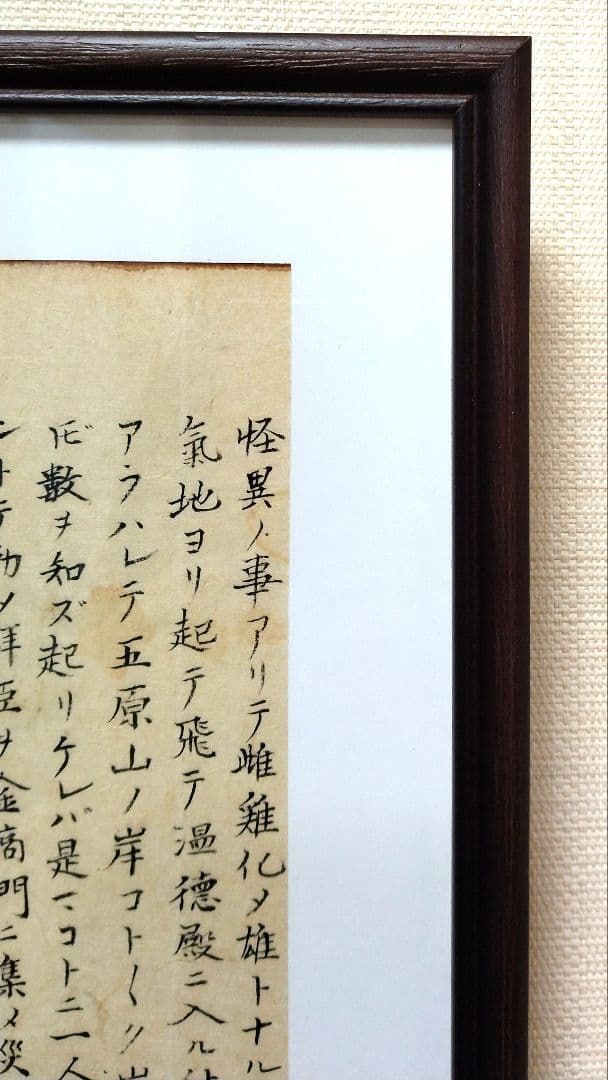 怪異ノ事アリテ雌雞化メ雄トナル
氣地ヨリ起テ飛テ温德殿ニ入ル
アラハレテ五原山ノ岸コト〱ク
ビ數ヲ知ズ起リケレバ是マコトニ一人
臣ヲ金商門ニ集メ災